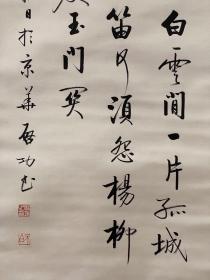 白雲間一片孤城
笛何須怨楊柳
玉門関
日於京華啓功書